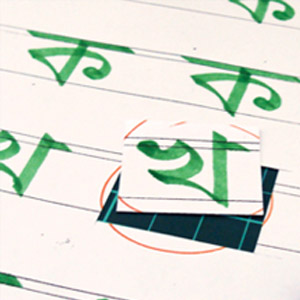 ক ক
খ খ